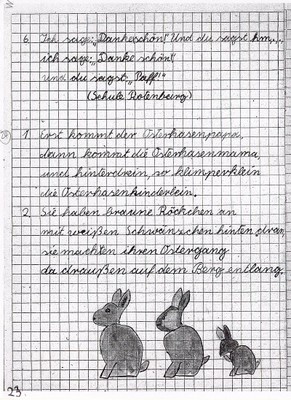 6. Ich sage: „Dankeschön!" Und du sagst hm...,
ich sage: „Danke schön!"
und du sagst „Paff!"
(Schule Rotenburg)
1. Erst kommt der Osterhasenpapa,
dann kommt die Osterhasenmama,
und hinterdrein, so klimperklein
die Osterhasenkinderlein.
2. Sie haben braune Röckchen an
mit weißen Schwänzchen hinten dran,
sie machten ihren Ostergang
da draußen auf dem Berg entlang.
23